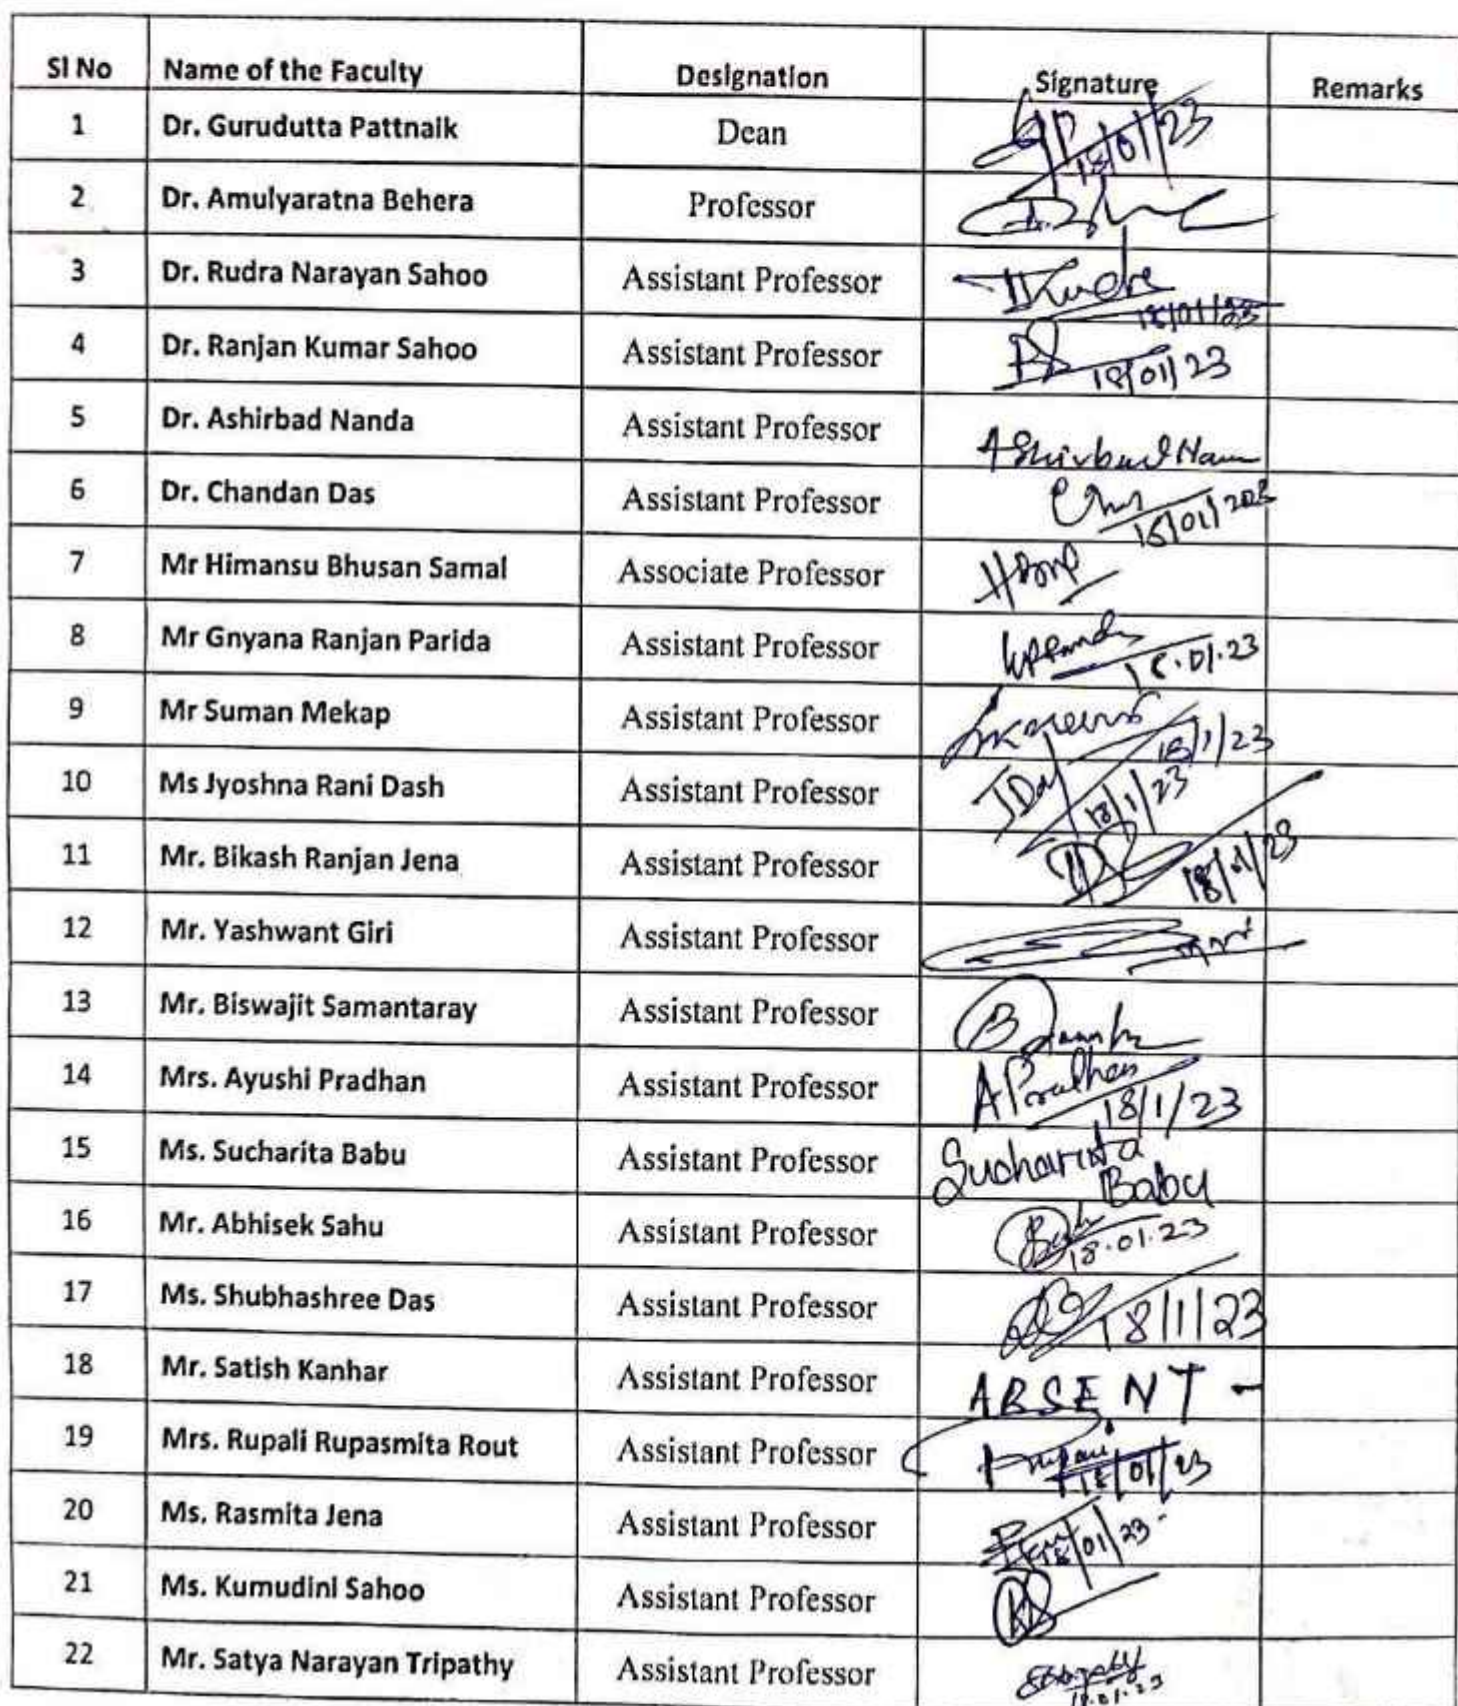 Sl No Name of the Faculty Designation Signature Remarks
1 Dr. Gurudutta Pattnaik Dean 18/01/23
2 Dr. Amulyaratna Behera Professor
3 Dr. Rudra Narayan Sahoo Assistant Professor Rudra 18/01/23
4 Dr. Ranjan Kumar Sahoo Assistant Professor 18/01/23
5 Dr. Ashirbad Nanda Assistant Professor Ashirbad Nan
6 Dr. Chandan Das Assistant Professor
7 Mr Himansu Bhusan Samal Associate Professor
8 Mr Gnyana Ranjan Parida Assistant Professor 18.01.23
9 Mr Suman Mekap Assistant Professor 18/1/23
10 Ms Jyoshna Rani Dash Assistant Professor 18/1/23
11 Mr. Bikash Ranjan Jena Assistant Professor 18/01/23
12 Mr. Yashwant Giri Assistant Professor
13 Mr. Biswajit Samantaray Assistant Professor
14 Mrs. Ayushi Pradhan Assistant Professor APradhan 18/1/23
15 Ms. Sucharita Babu Assistant Professor Sucharita Babu
16 Mr. Abhisek Sahu Assistant Professor 18.01.23
17 Ms. Shubhashree Das Assistant Professor 18/1/23
18 Mr. Satish Kanhar Assistant Professor ABSENT -
19 Mrs. Rupali Rupasmita Rout Assistant Professor 18/01/23
20 Ms. Rasmita Jena Assistant Professor 18/01/23
21 Ms. Kumudini Sahoo Assistant Professor
22 Mr. Satya Narayan Tripathy Assistant Professor 18.01.23